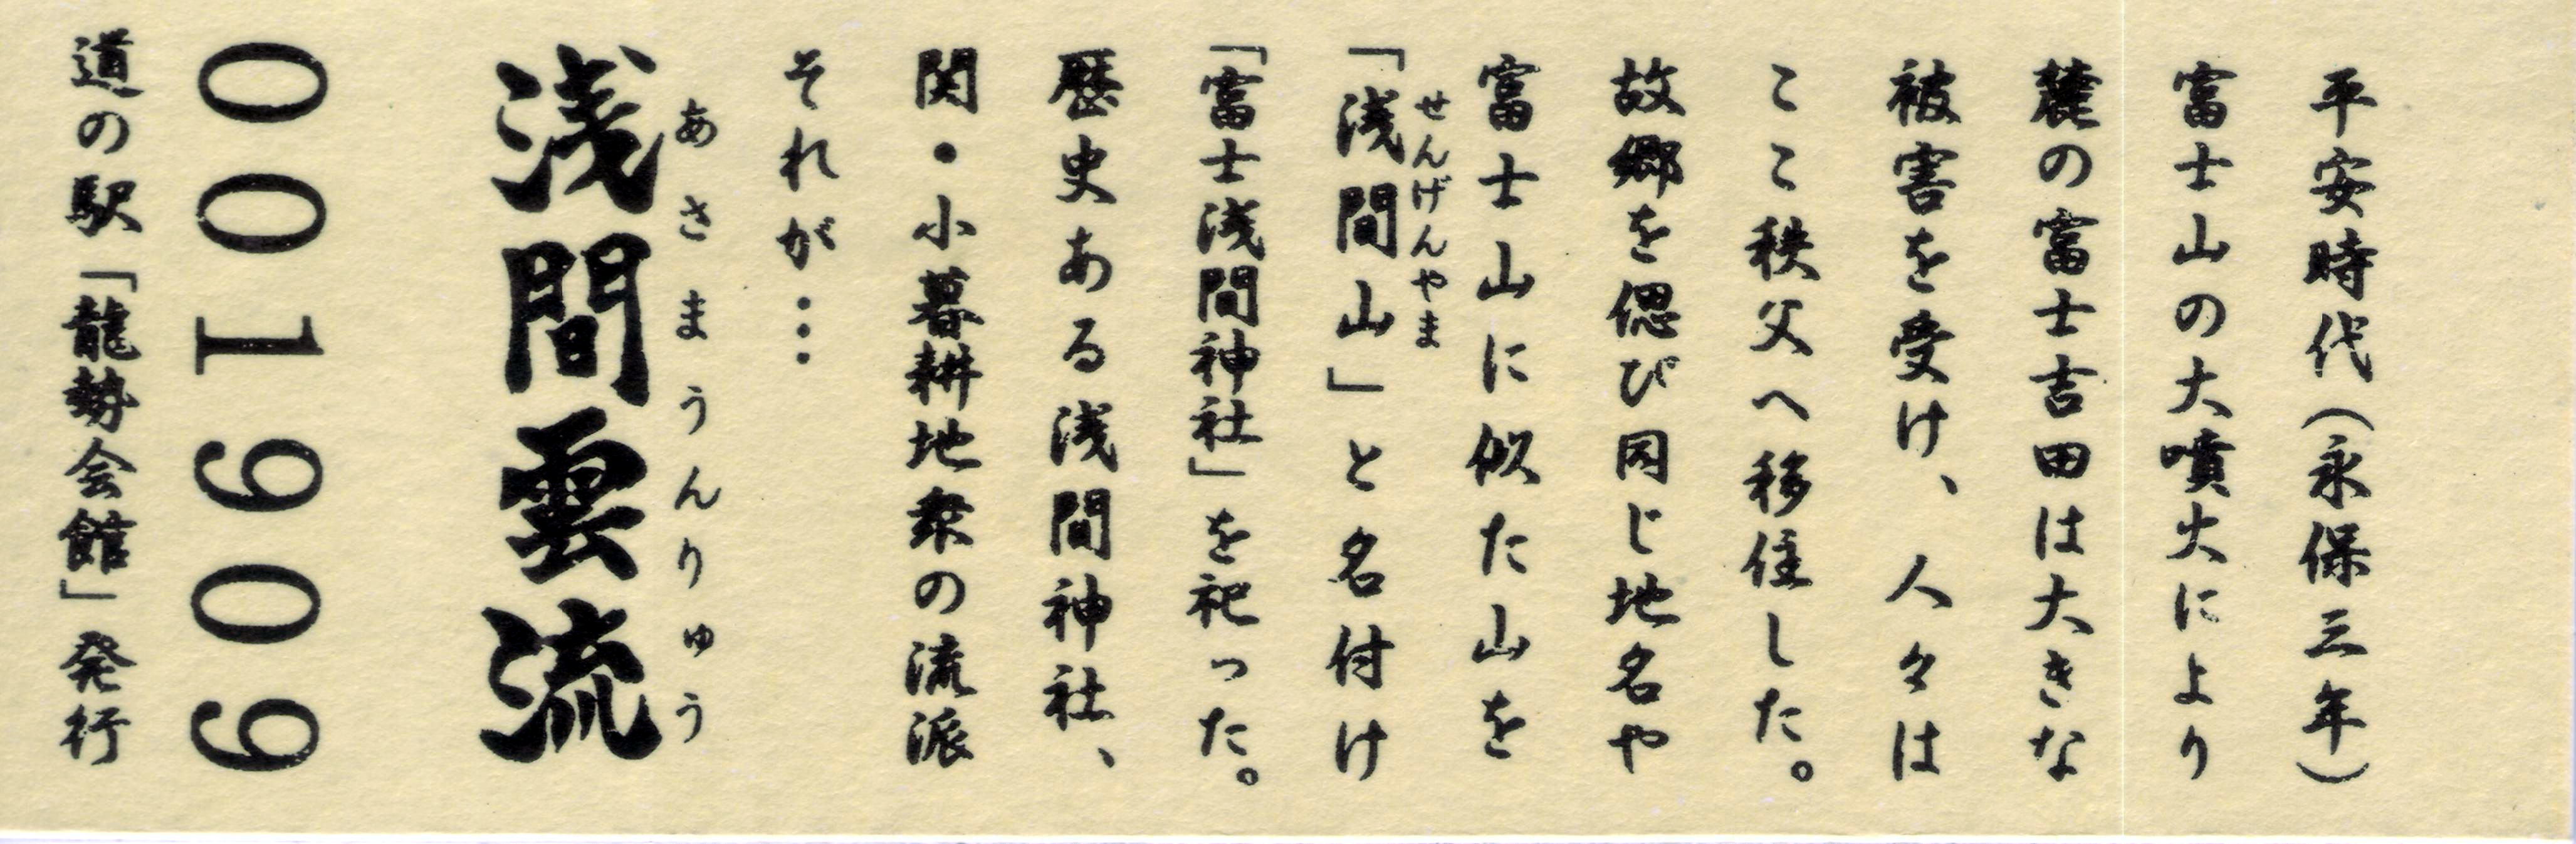 平安時代(永保三年)
富士山の大噴火により
麓の富士吉田は大きな
被害を受け、人々は
ここ秩父へ移住した。
故郷を偲び同じ地名や
富士山に似た山を
せんげんやま
「浅間山」と名付け
「富士浅間神社」を祀った。
歴史ある浅間神社、
関・小暮耕地衆の流派
それが…
あさまうんりゅう
浅間雲流
001909
道の駅「龍勢会館」発行